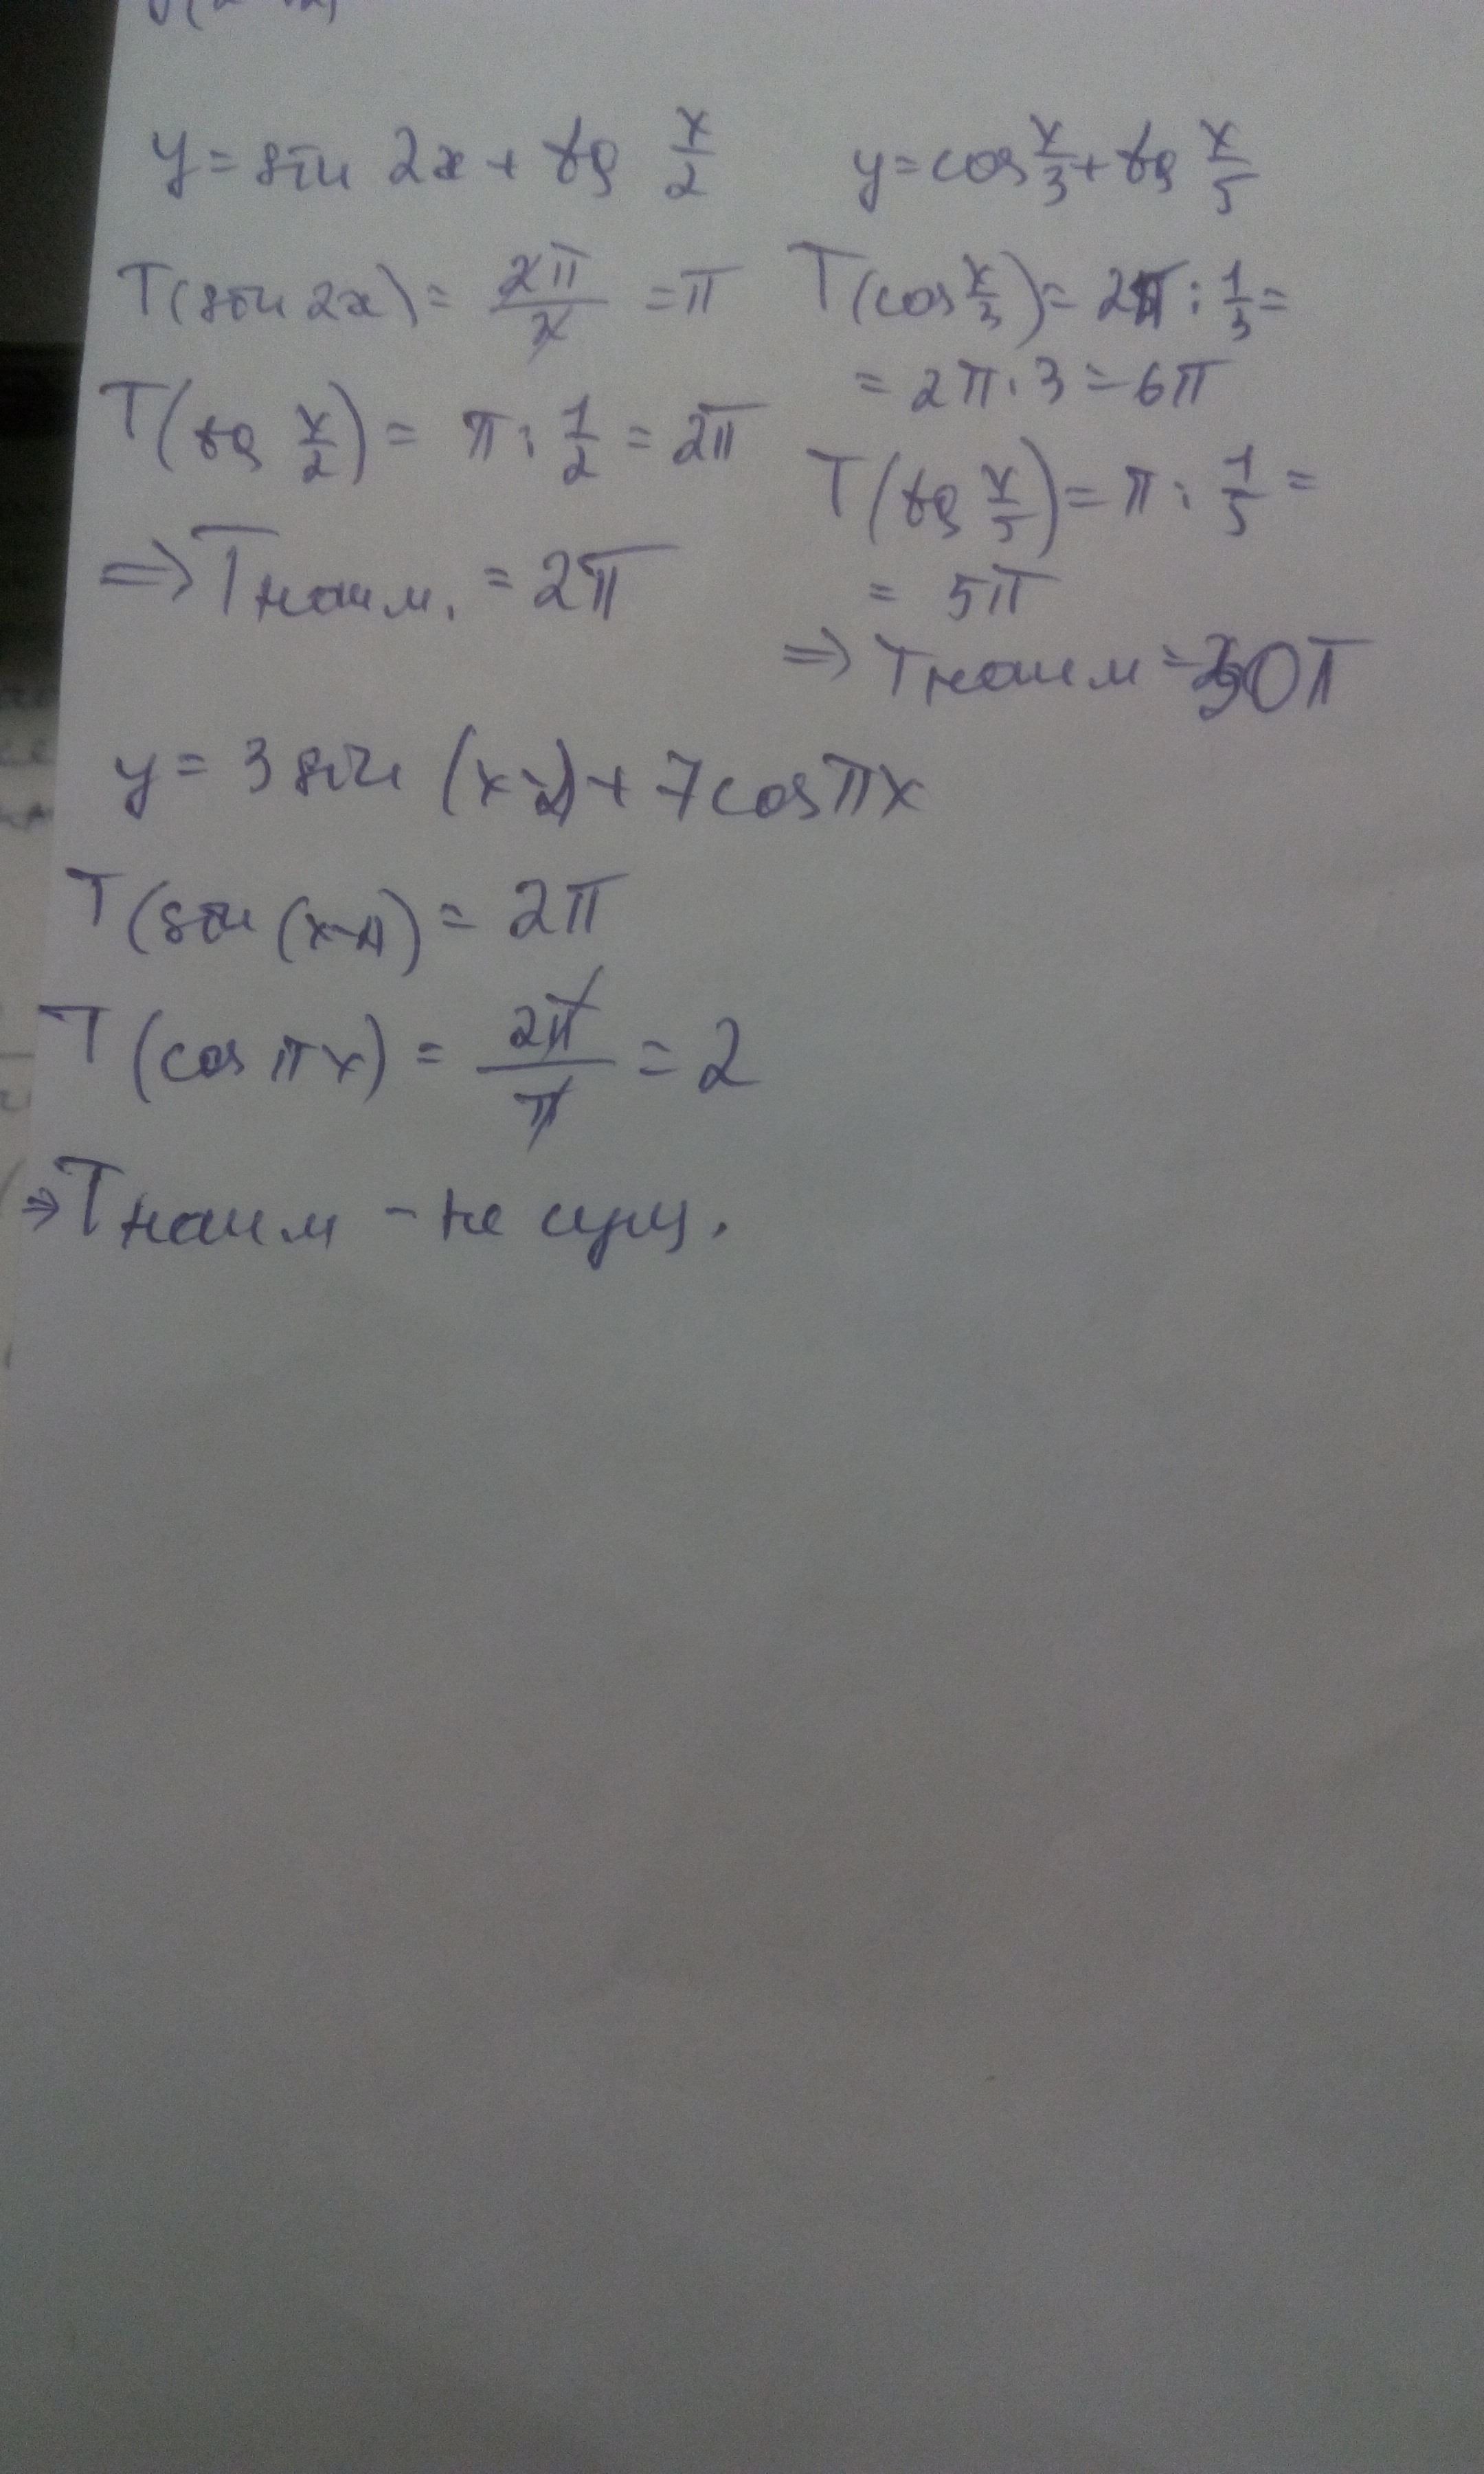 y = sin 2x + tg x/2
T(sin 2x) = 2π/2 = π
T(tg x/2) = π : 1/2 = 2π
⇒ T наим. = 2π
y = cos x/3 + tg x/5
T(cos x/3) = 2π : 1/3 =
= 2π · 3 = 6π
T(tg x/5) = π : 1/5 =
= 5π
⇒ T наим = 30π
y = 3 sin (x-1) + 7 cos πx
T(sin (x-1)) = 2π
T(cos πx) = 2π/π = 2
⇒ T наим - не сущ.